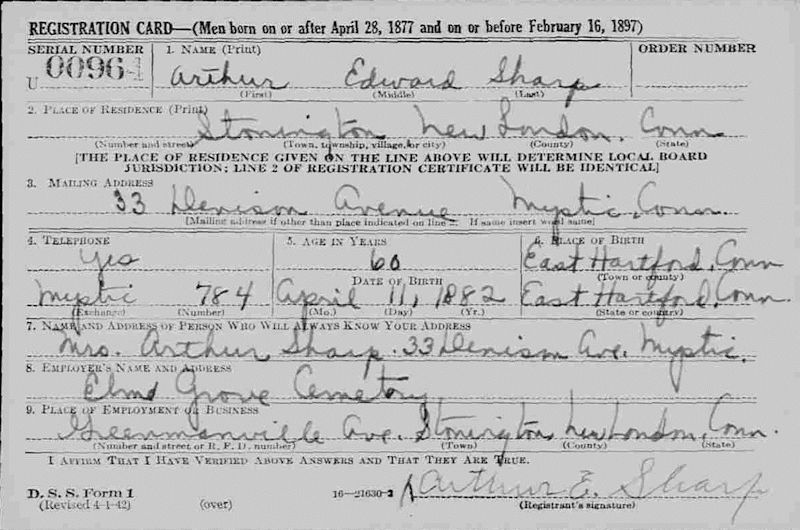 REGISTRATION CARD—(Men born on or after April 28, 1877 and on or before February 16, 1897)
SERIAL NUMBER 1. NAME (Print) ORDER NUMBER
U 00964 Arthur Edward Sharp
(First) (Middle) (Last)
2. PLACE OF RESIDENCE (Print)
Stonington New London, Conn
(Number and street) (Town, township, village, or city) (County) (State)
[THE PLACE OF RESIDENCE GIVEN ON THE LINE ABOVE WILL DETERMINE LOCAL BOARD
JURISDICTION; LINE 2 OF REGISTRATION CERTIFICATE WILL BE IDENTICAL]
3. MAILING ADDRESS
33 Denison Avenue Mystic, Conn.
[Mailing address if other than place indicated on line 2. If same insert word same]
4. TELEPHONE 5. AGE IN YEARS 6. PLACE OF BIRTH
Yes 60 East Hartford, Conn
DATE OF BIRTH (Town or county)
Mystic 784 April 11, 1882 East Hartford, Conn.
(Exchange) (Number) (Mo.) (Day) (Yr.) (State or country)
7. NAME AND ADDRESS OF PERSON WHO WILL ALWAYS KNOW YOUR ADDRESS
Mrs. Arthur Sharp. 33 Denison Ave. Mystic.
8. EMPLOYER'S NAME AND ADDRESS
Elm Grove Cemetery
9. PLACE OF EMPLOYMENT OR BUSINESS
Greenmanville Ave. Stonington, New London, Conn.
(Number and street or R. F. D. number) (Town) (County) (State)
I AFFIRM THAT I HAVE VERIFIED ABOVE ANSWERS AND THAT THEY ARE TRUE.
D. S. S. Form 1 16—21630-2 Arthur E. Sharp
(Revised 4-1-42) (over) (Registrant's signature)